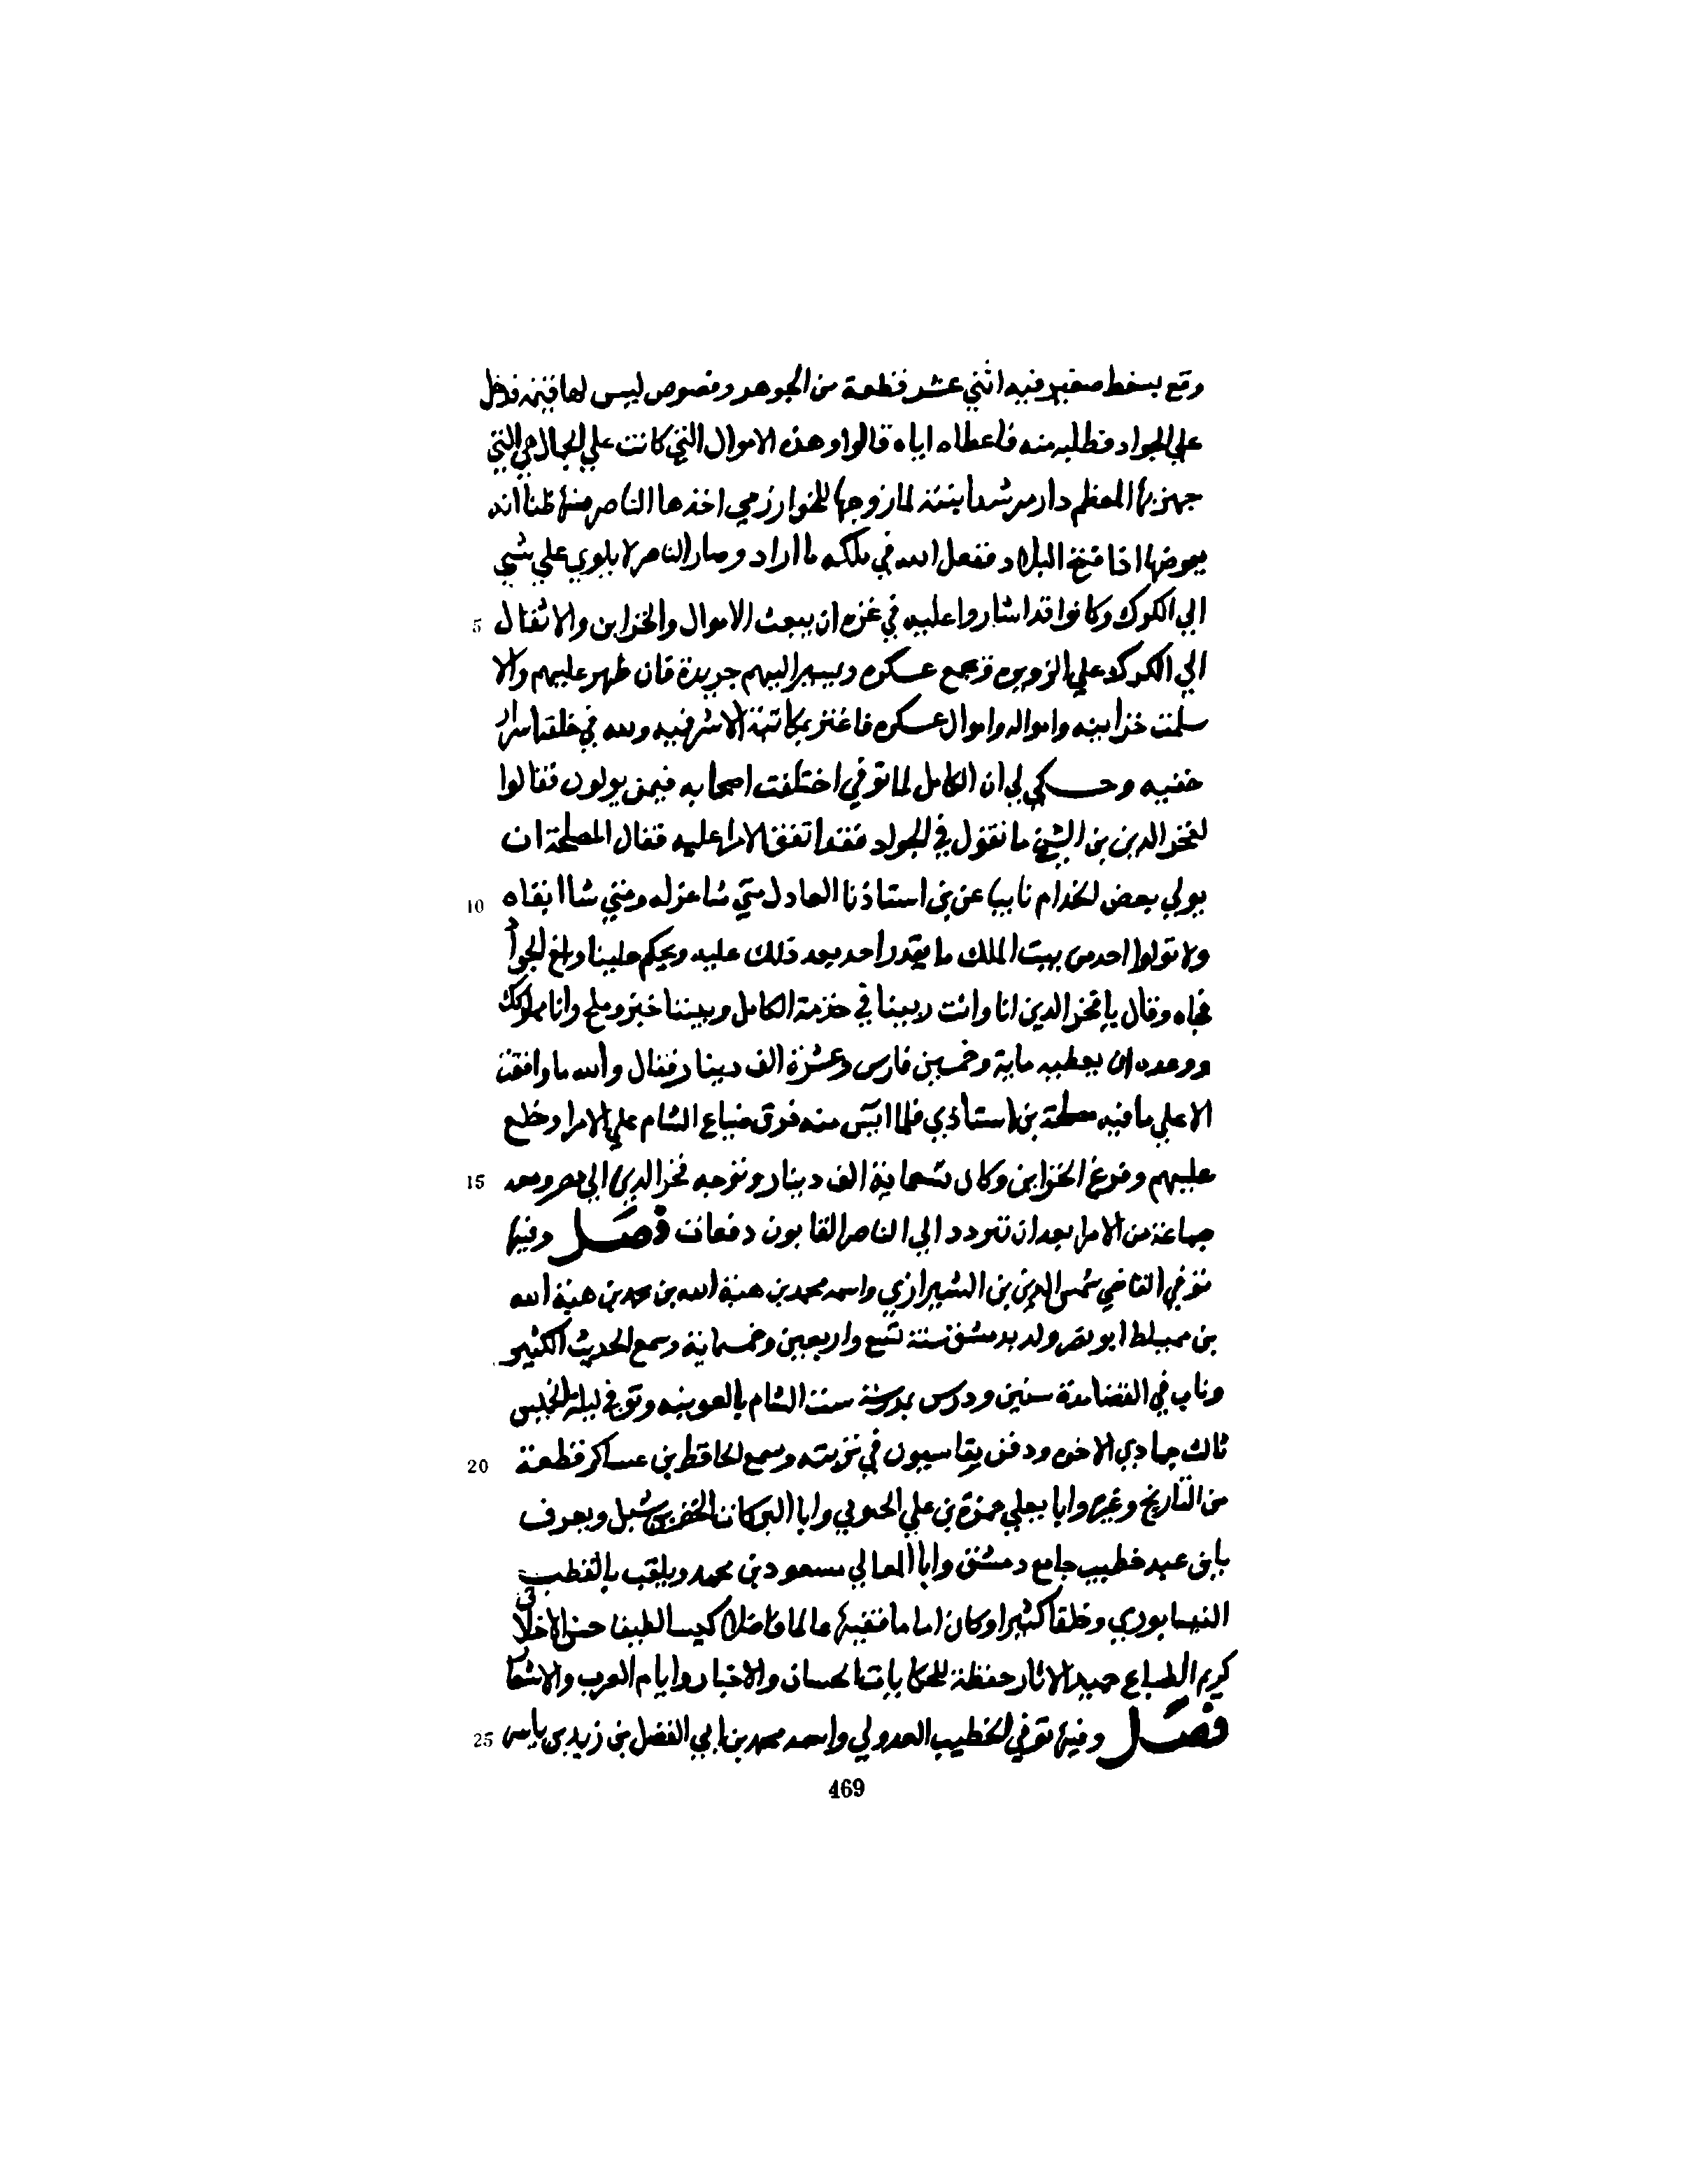 وقع بسفط صغير فيه اثني عشر قطعة من الجوهر وفصوص ليس لها قيمه فدخل
علي الجواد فطلبه منه فاعطاه اياه قالوا وهذه الاموال التي كانت علي الجمال هي التي
جهز بها المعظم دار مرشد ابنته لما زوجها للخوارزمي اخذها الناصر منها ظنا انه
يعوضها اذا فتح البلاد ففعل الله في ملكه ما اراد وصار الناصر لا يلوي علي شي
5 الي الكرك وكانوا قد اشاروا عليه في غزه ان يبعث الاموال والخزاين والاثقال
الي الكرك علي الزويره ويجمع عسكره ويسير اليهم جريدة فان ظهر عليهم والا
سلمت خزاينه وامواله واموال عسكره فاغتر بمكاتبة الاشرفيه ولله في خلقه اسرار
خفيه وحكي لي ان الكامل لما توفي اختلفت اصحابه فيمن يولون فقالوا
لفخر الدين بن الشيخ ما تقول في الجواد فقد اتفق الامرا عليه فقال المصلحة ان
10 يولي بعض الخدام نايبا عن بن استاذنا العادل متي شا عزله ومتي شا ابقاه
ولا تولوا احد من بيت الملك ما يقدر احد بعد ذلك عليه ويحكم علينا وبلغ الجواد
فجاه وقال يا فخر الدين انا وانت ربينا في خدمة الكامل وبيننا خبز وملح وانا مملوكك
ووعده ان يعطيه ماية وخمسين فارس وعشرة الف دينار فقال والله ما وافقت
الا علي ما فيه مصلحة بن استاذي فلما ايس منه فرق ضياع الشام علي الامرا وخلع
15 عليهم وفرغ الخزاين وكان تسعماية الف دينار وتوجه فخر الدين الي مصر ومعه
جماعة من الامرا بعد ان تردد الي الناصر القابون دفعات فصل وفيها
توفي القاضي شمس الدين بن الشيرازي واسمه محمد بن هبة الله بن محمد بن هبة الله
بن مميلط ابو نصر ولد بدمشق سنة تسع واربعين وخمسماية وسمع الحديث الكثير
وناب في القضا مدة سنين ودرس بمدرسة ست الشام بالعوينيه وتوفي ليلة الخميس
20 ثالث جمادي الاخره ودفن بقاسيون في تربته وسمع الحافظ بن عساكر قطعة
من التاريخ وغيره وابا يعلي حمزة بن علي الحبوبي وابا البركات الخضر بن شبل ويعرف
بابن عبد خطيب جامع دمشق وابا المعالي مسعود بن محمد ويلقب بالقطب
النيسابوري وخلقا كثيرا وكان اماما فقيها عالما فاضلا كيسا لطيفا حسن الاخلاق
كريم الطباع حميد الاثار حفظة للحكايات الحسان والاخبار وايام العرب والاشعا
25 فصل وفيها توفي الخطيب الدولي واسمه محمد بن ابي الفضل بن زيد بن ياسر
469